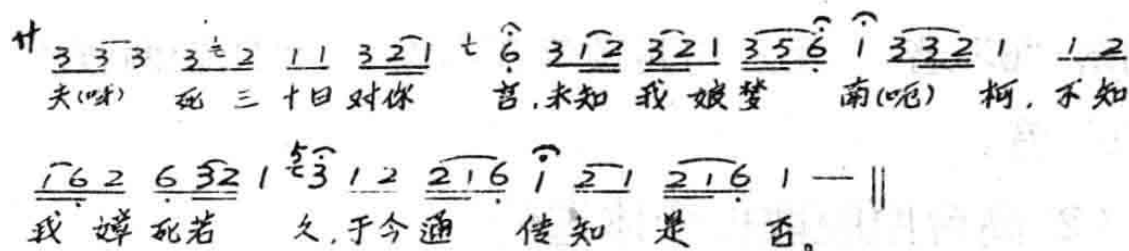 サ 3 3 3 3 2 1 1 3 2 1 6 3 1 2 3 2 1 3 5 6 1 3 3 2 1 1 2
夫(呀) 死 三 十日 对你 言,未知 我 娘 梦 南(呃) 柯,不知
1 6 2 6 3 2 1 3 1 2 2 1 6 1 2 1 2 1 6 1 — ‖
我 婶 死若 久,于今通 传 知 是 否。